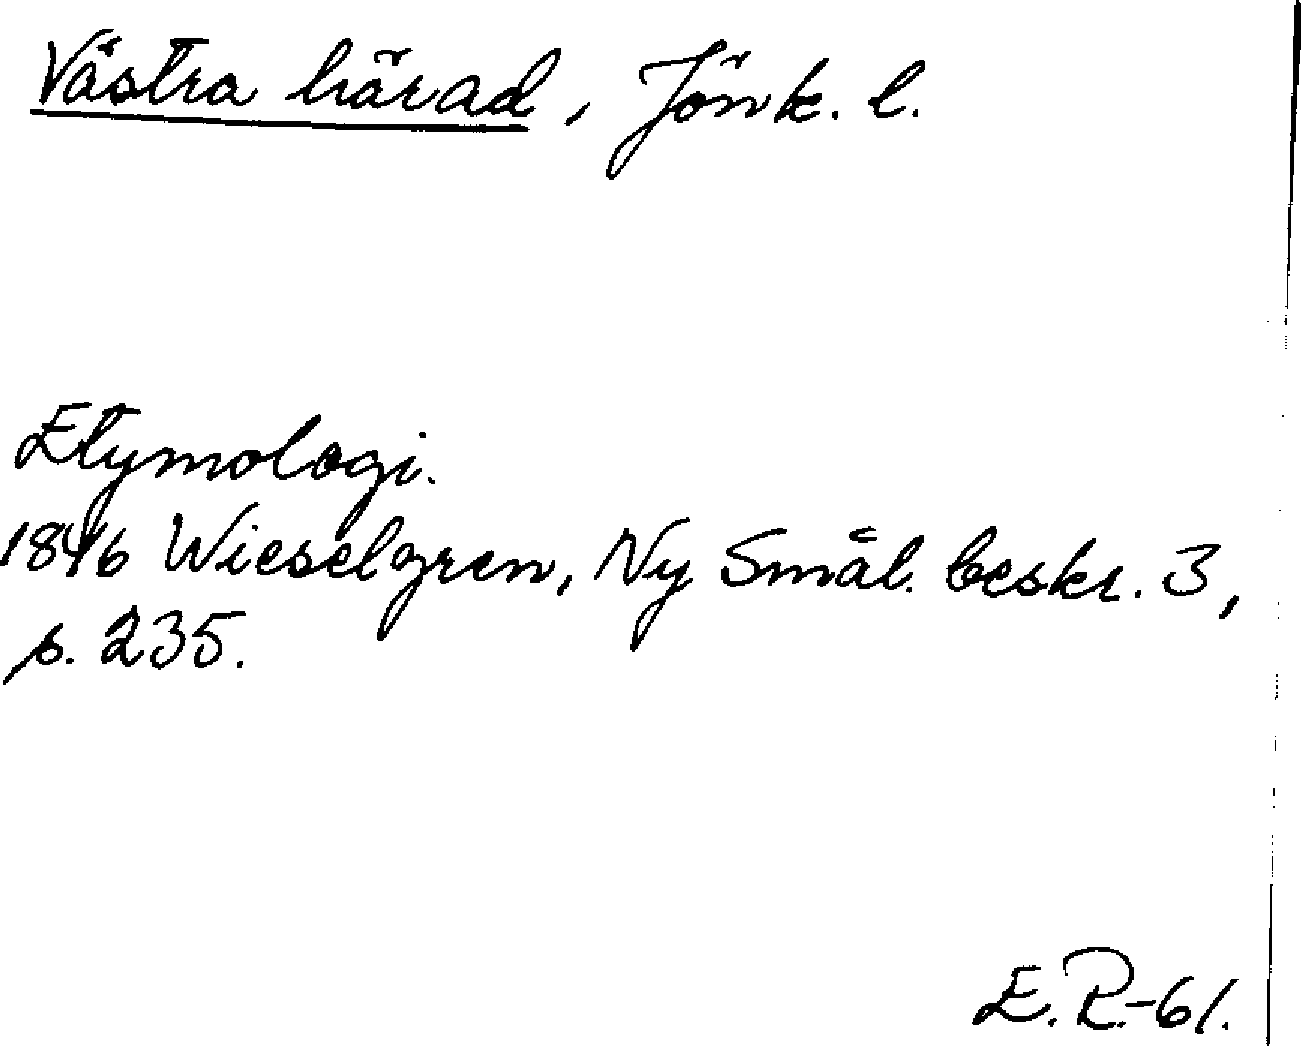 Västra härad, Jönk. l.
Etymologi.
1846 Wieselgren, Ny Smål. beskr. 3,
s. 235.
E. R.-61.